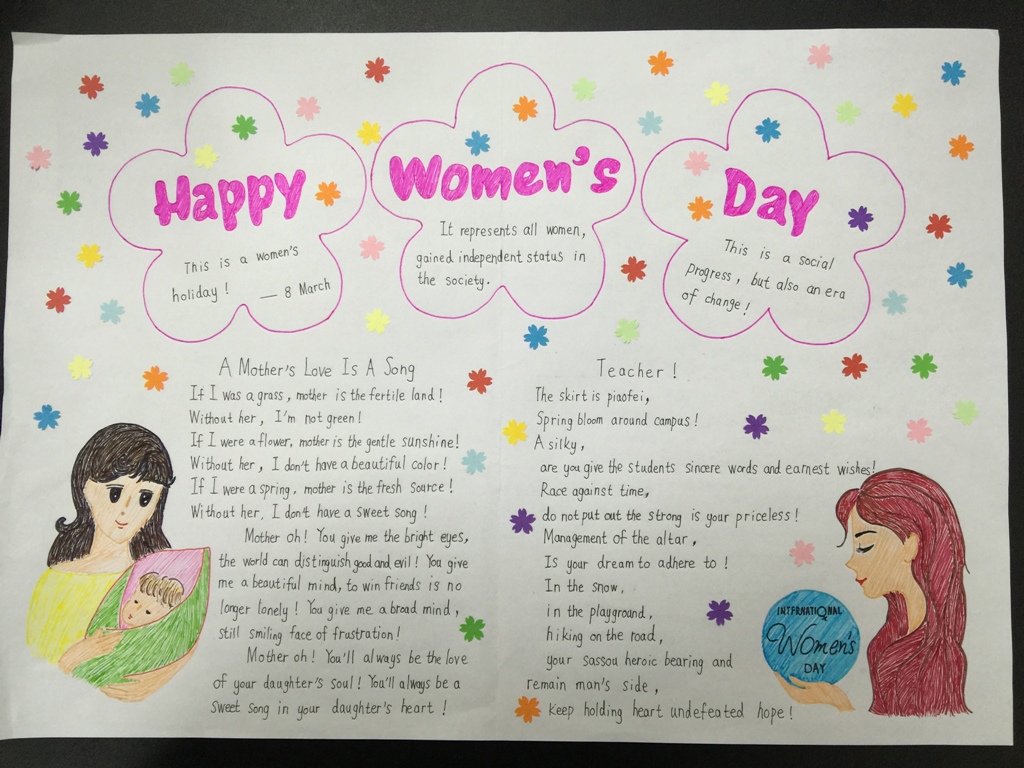 Happy
This is a women's
holiday!
— 8 March
Women's
It represents all women,
gained independent status in
the society.
Day
This is a social
progress, but also an era
of change!
A Mother's Love Is A Song
If I was a grass, mother is the fertile land!
Without her, I'm not green!
If I were a flower, mother is the gentle sunshine!
Without her, I don't have a beautiful color!
If I were a spring, mother is the fresh source!
Without her, I don't have a sweet song!
Mother oh! You give me the bright eyes,
the world can distinguish good and evil! You give
me a beautiful mind, to win friends is no
longer lonely! You give me a broad mind,
still smiling face of frustration!
Mother oh! You'll always be the love
of your daughter's soul! You'll always be a
sweet song in your daughter's heart!
Teacher!
The skirt is piaofei,
Spring bloom around campus!
A silky,
are you give the students sincere words and earnest wishes!
Race against time,
do not put out the strong is your priceless!
Management of the altar,
Is your dream to adhere to!
In the snow,
in the playground,
hiking on the road,
your sassou heroic bearing and
remain man's side,
Keep holding heart undefeated hope!
INTERNATIONAL
Women's
DAY